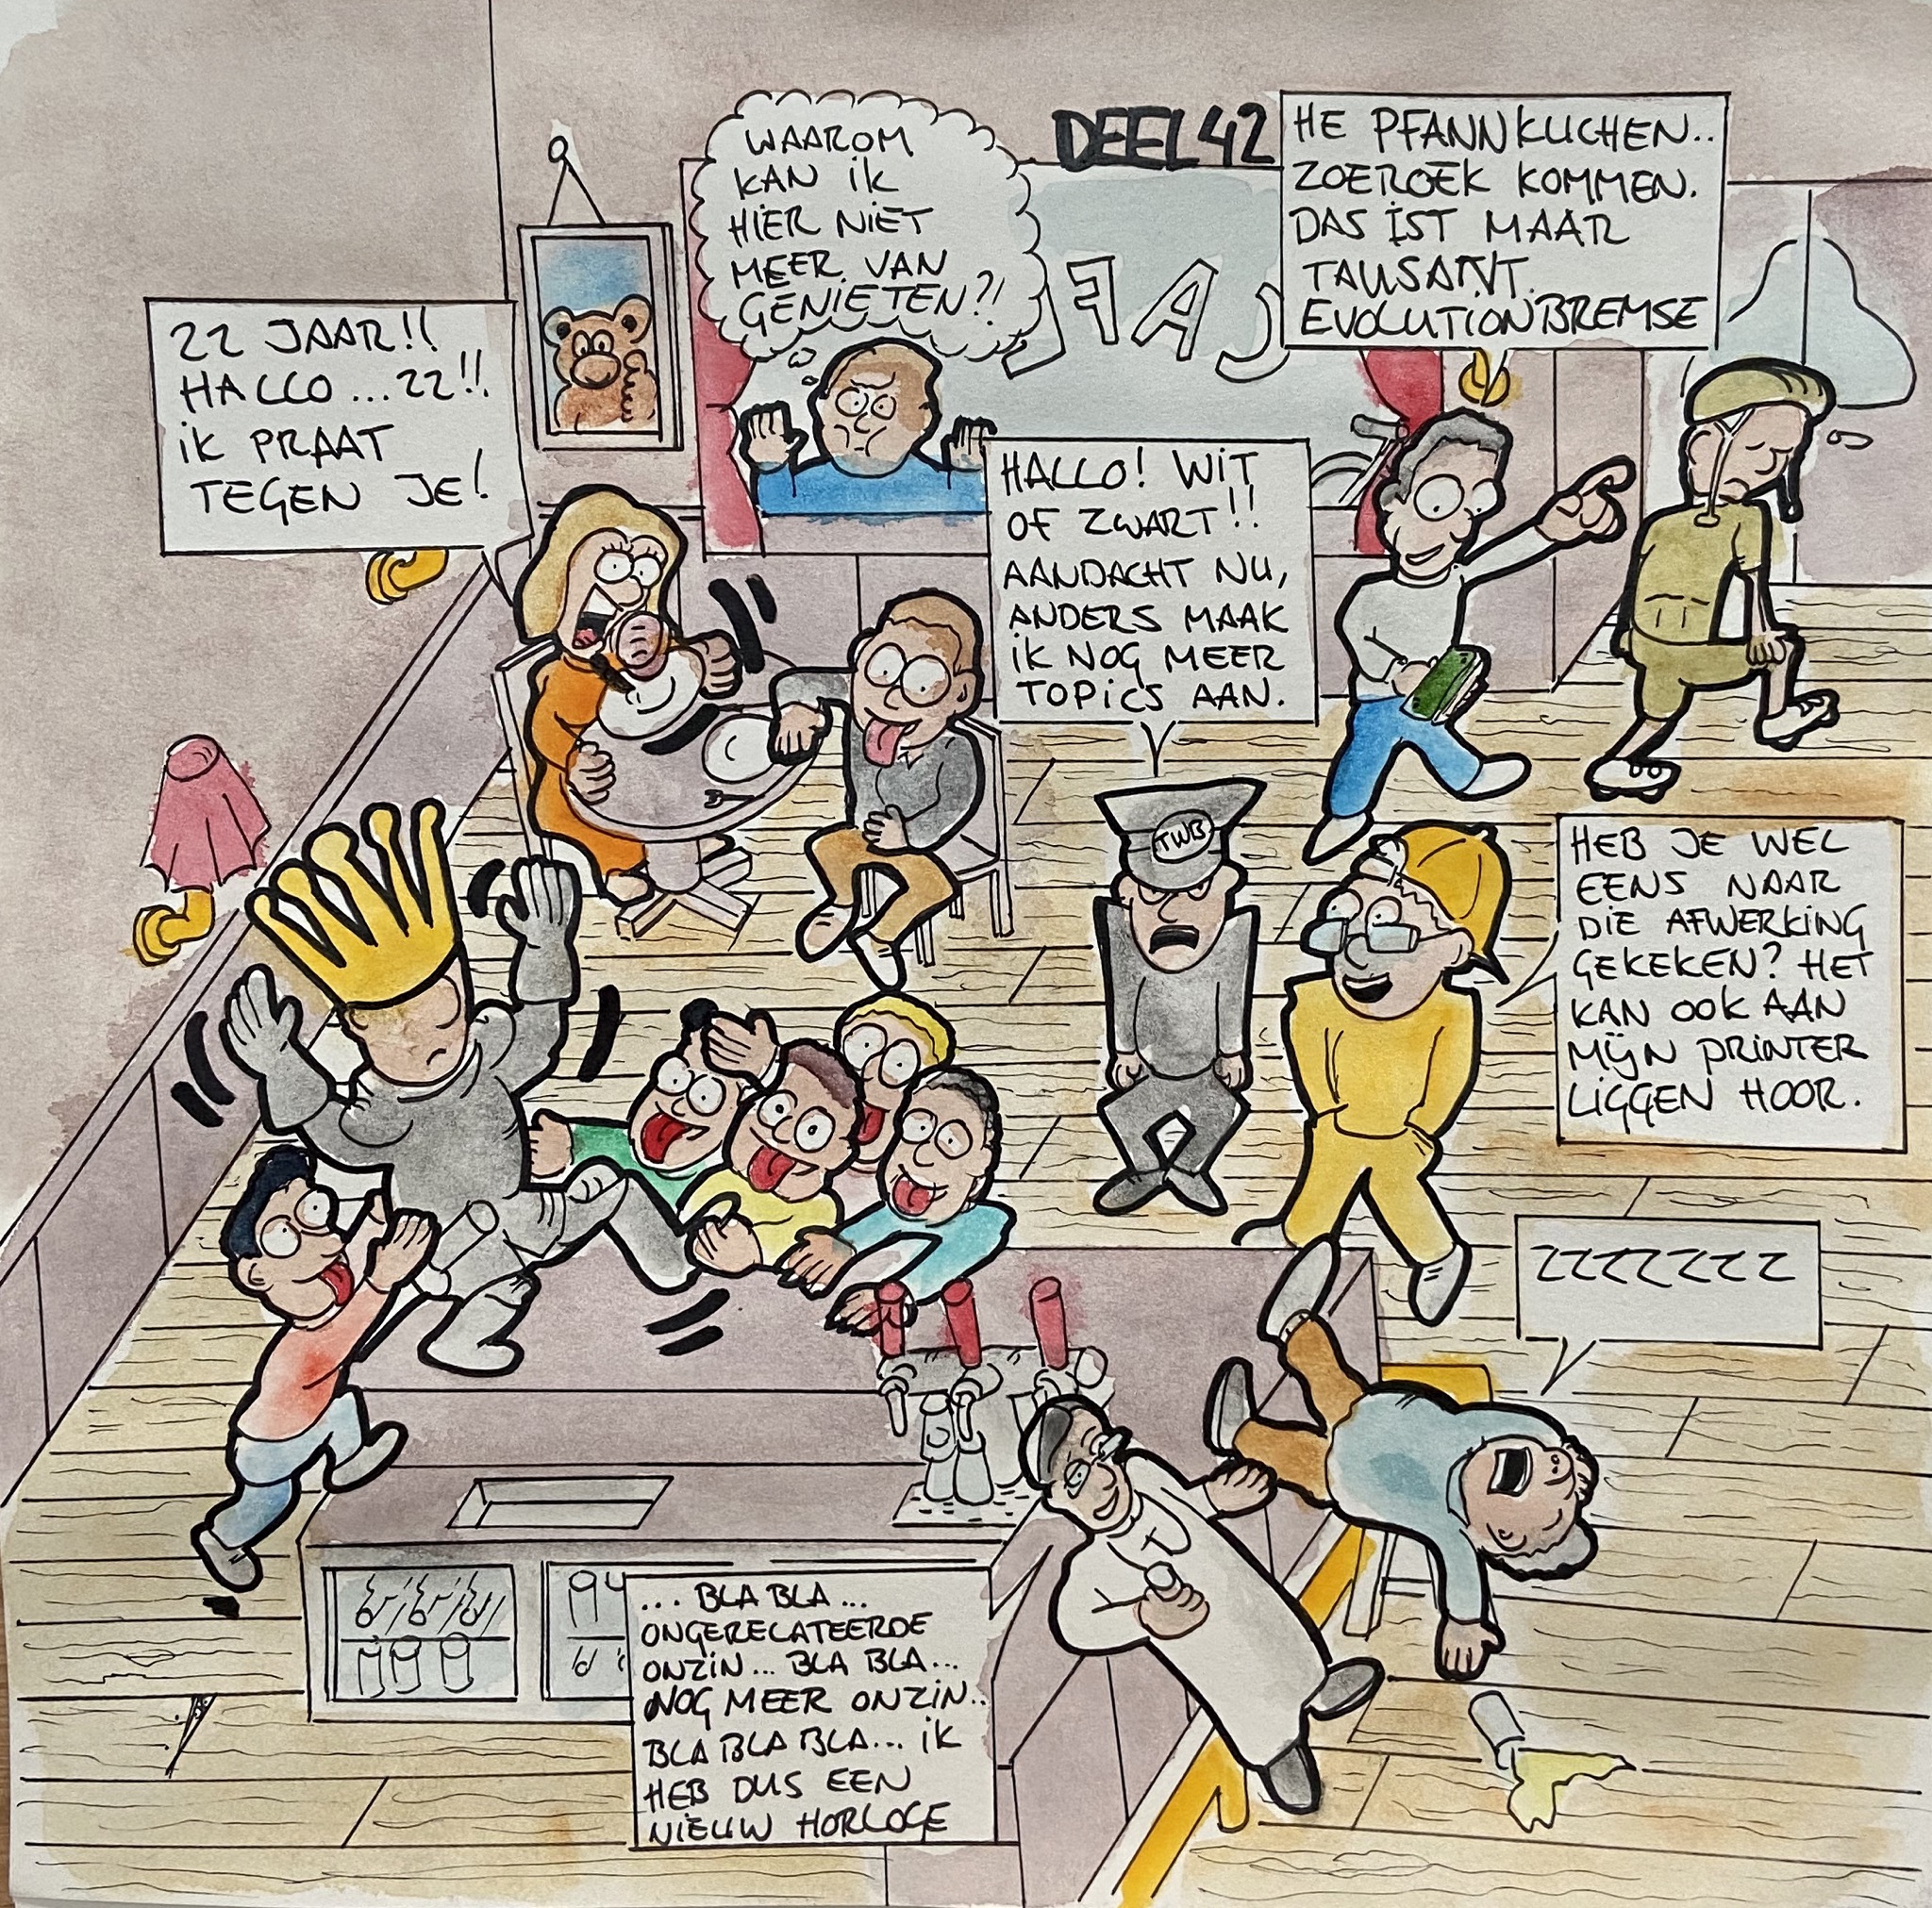 DEEL 42
22 JAAR!!
HALLO...22!!
iK PRAAT
TEGEN JE!
WAAROM
KAN iK
HiER NiET
MEER VAN
GENiETEN?!
HE PFANNKUCHEN..
ZOEROEK KOMMEN.
DAS iST MAAR
TAUSANT.
EVOLUTiONBREMSE
CAFE
HALLO! WiT
OF ZWART!!
AANDACHT NU,
ANDERS MAAK
iK NOG MEER
TOPiCS AAN.
TWB
HEB JE WEL
EENS NAAR
DiE AFWERKiNG
GEKEKEN? HET
KAN OOK AAN
MiJN PRiNTER
LiGGEN HOOR.
ZZZZZZZ
... BLA BLA ...
ONGERELATEERDE
ONZiN... BLA BLA...
NOG MEER ONZiN..
BLA BLA BLA... iK
HEB DUS EEN
NiEUW HORLOGE